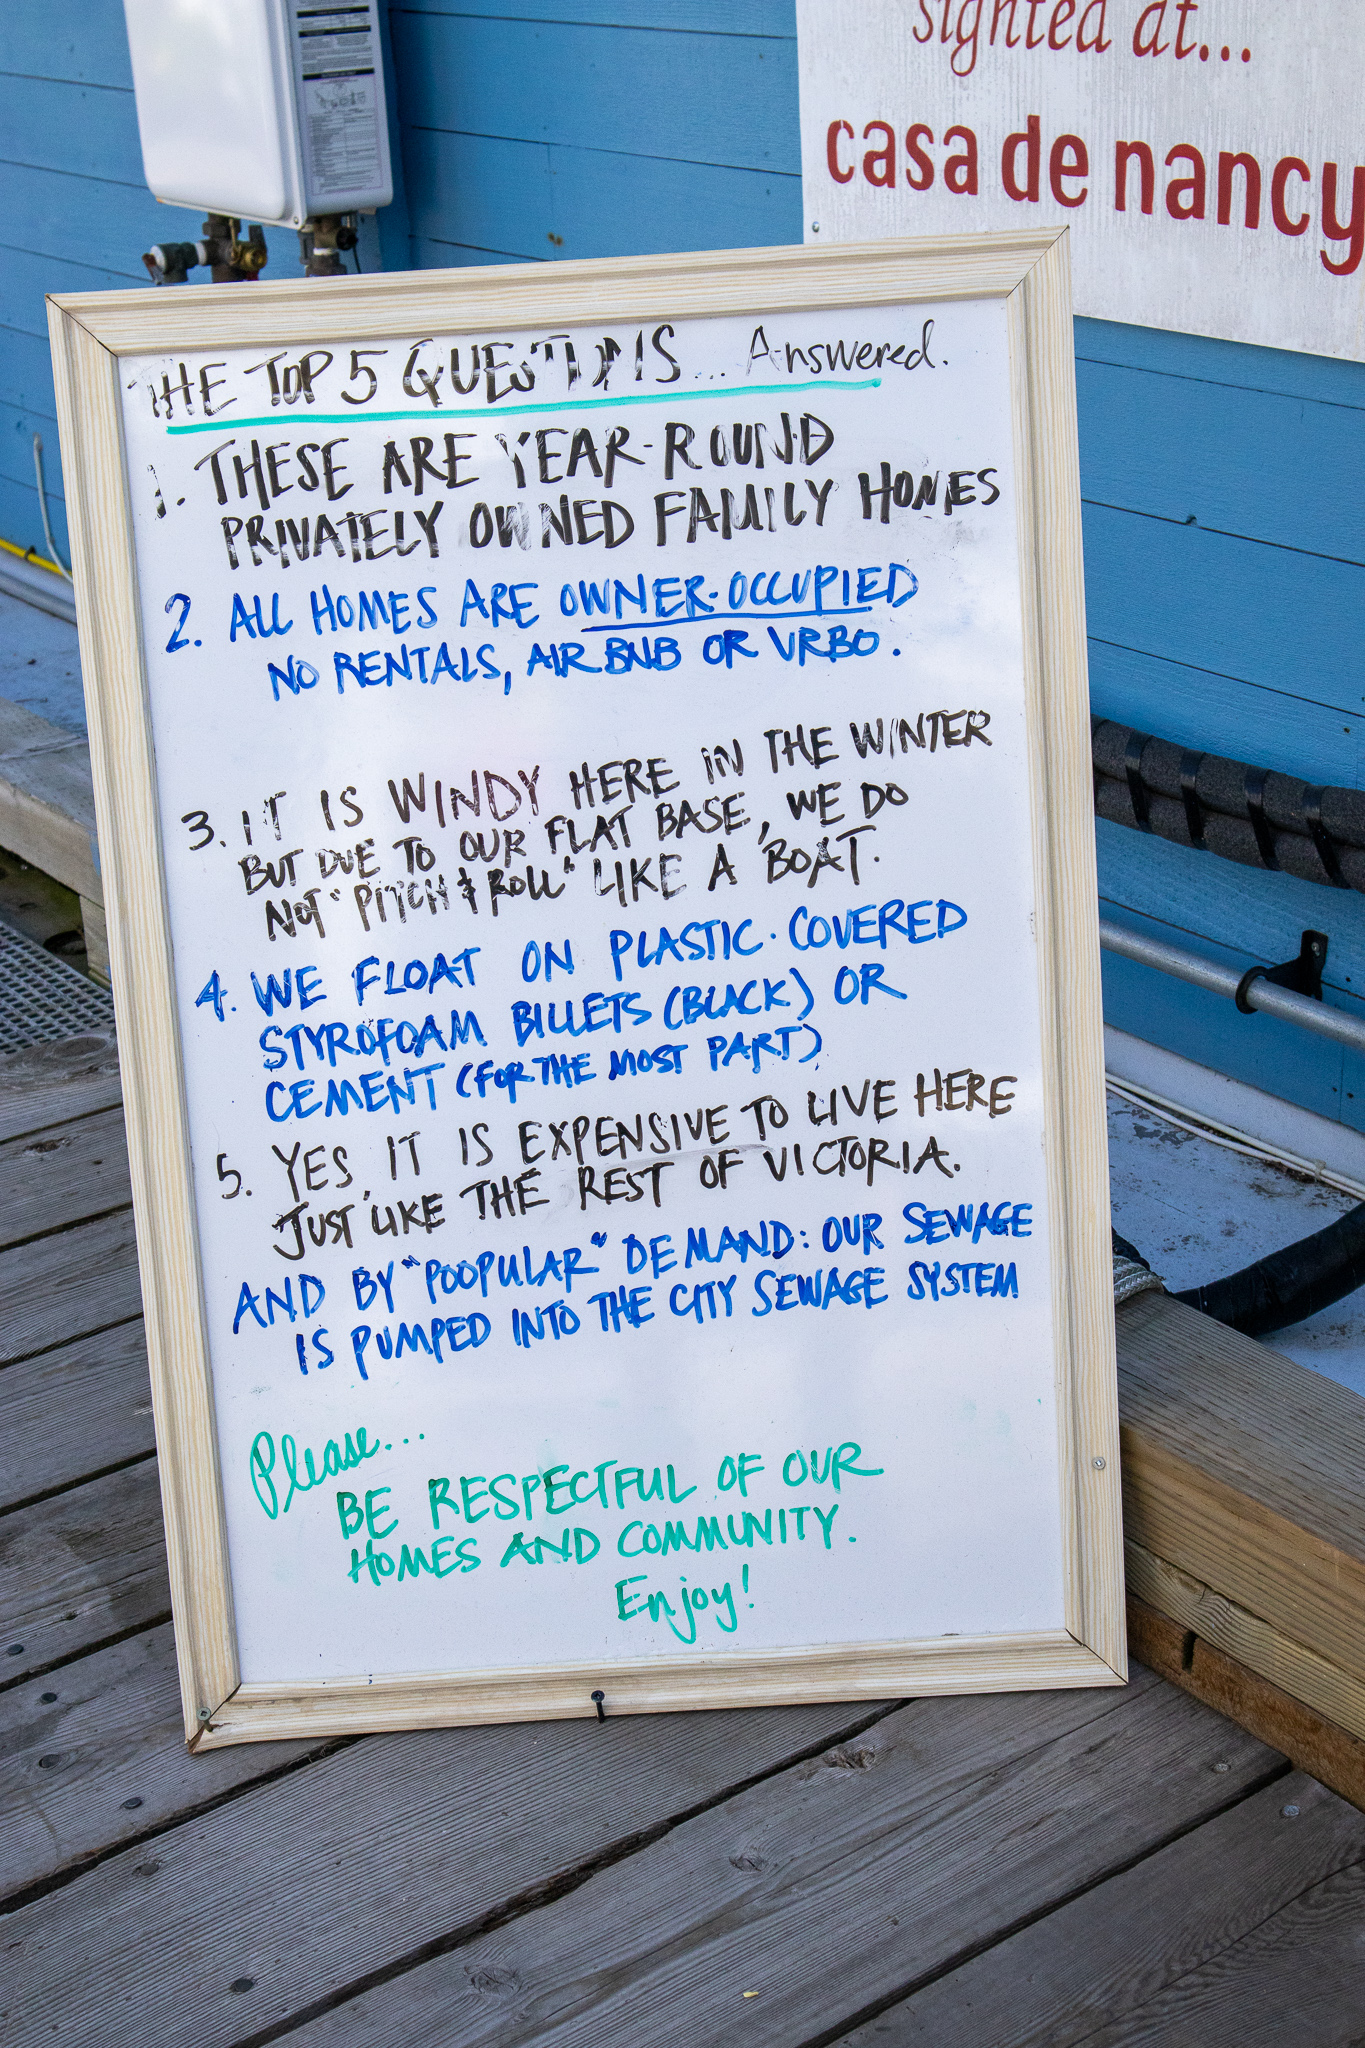 sighted at...
casa de nancy
THE TOP 5 QUESTIONS... Answered.
1. THESE ARE YEAR-ROUND
PRIVATELY OWNED FAMILY HOMES
2. ALL HOMES ARE OWNER-OCCUPIED
NO RENTALS, AIRBNB OR VRBO.
3. IT IS WINDY HERE IN THE WINTER
BUT DUE TO OUR FLAT BASE, WE DO
NOT "PITCH & ROLL" LIKE A BOAT.
4. WE FLOAT ON PLASTIC-COVERED
STYROFOAM BILLETS (BLACK) OR
CEMENT (FOR THE MOST PART)
5. YES, IT IS EXPENSIVE TO LIVE HERE
JUST LIKE THE REST OF VICTORIA.
AND BY "POOPULAR" DEMAND: OUR SEWAGE
IS PUMPED INTO THE CITY SEWAGE SYSTEM
Please...
BE RESPECTFUL OF OUR
HOMES AND COMMUNITY.
Enjoy!